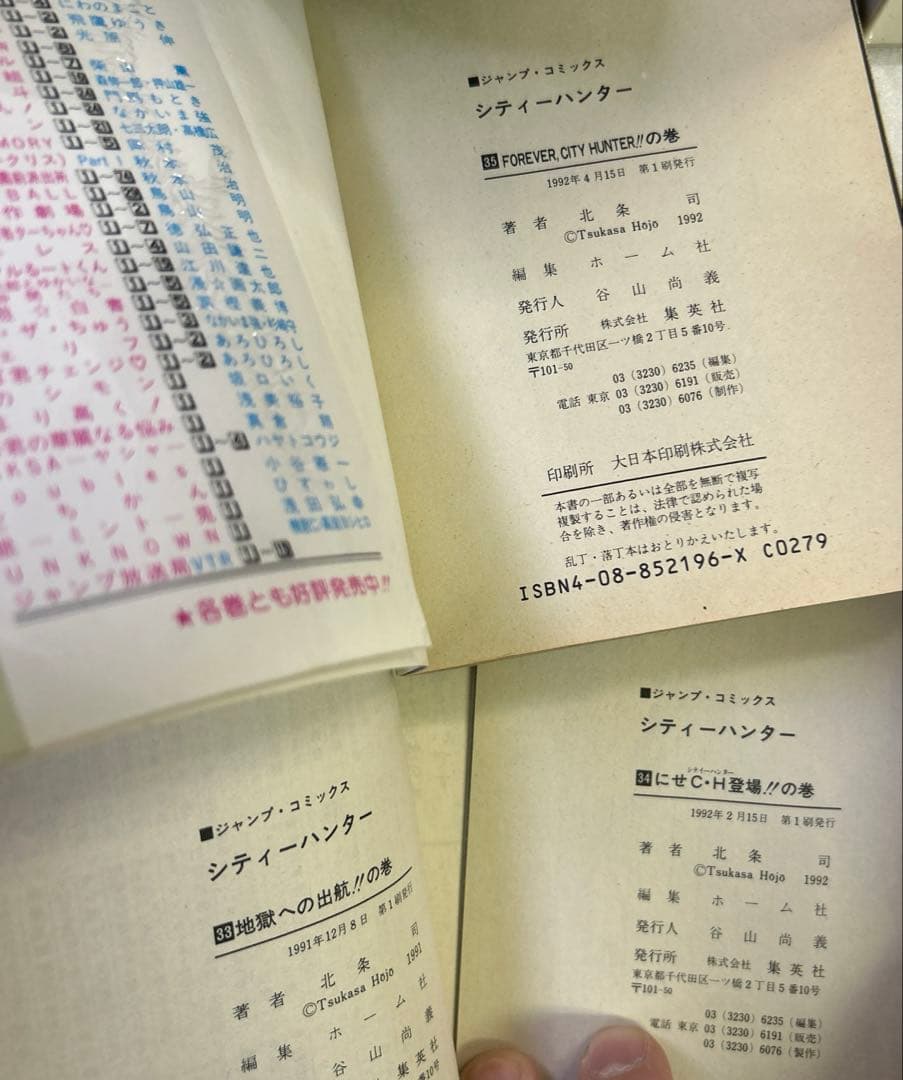 にわのまこと
飛鷹ゆうき
光原 伸
柴山 薫
門馬もとき
なかいま強
七三太朗・高橋広
MORY
クリス) Part 1 秋本 治
BALL 鳥山 明
作劇場 鳥山 明
徳弘正也
レス 山田謙二
ルるートくん 江川達也
自書
ザ・ちゅう なかいま強
ェリフ あろひろし
君チェンジ♡ あろひろし
のシモン
浅美裕子
君の華麗なる悩み
KSA―ヤシャ― ハヤトコウジ
小谷憲一
ひすゃし
浅田弘幸
UNKNOWN
ジャンプ放送局VTR
★各巻とも好評発売中!!
■ジャンプ・コミックス
シティーハンター
35 FOREVER, CITY HUNTER!!の巻
1992年4月15日 第1刷発行
著者 北条 司
©Tsukasa Hojo 1992
編集 ホーム社
発行人 谷山尚義
発行所 株式会社 集英社
東京都千代田区一ツ橋2丁目5番10号
〒101-50
03(3230)6235(編集)
電話 東京 03(3230)6191(販売)
03(3230)6076(制作)
印刷所 大日本印刷株式会社
本書の一部あるいは全部を無断で複写
複製することは、法律で認められた場
合を除き、著作権の侵害となります。
乱丁・落丁本はおとりかえいたします。
ISBN4-08-852196-X C0279
■ジャンプ・コミックス
シティーハンター
33 地獄への出航!!の巻
1991年12月8日 第1刷発行
著者 北条 司
©Tsukasa Hojo 1991
編集 ホーム社
谷山尚義
集英社
10号
■ジャンプ・コミックス
シティーハンター
シティーハンター
34 にせC・H登場!!の巻
1992年2月15日 第1刷発行
著者 北条 司
©Tsukasa Hojo 1992
編集 ホーム社
発行人 谷山尚義
発行所 株式会社 集英社
東京都千代田区一ツ橋2丁目5番10号
〒101-50
03(3230)6235(編集)
電話 東京 03(3230)6191(販売)
03(3230)6076(製作)